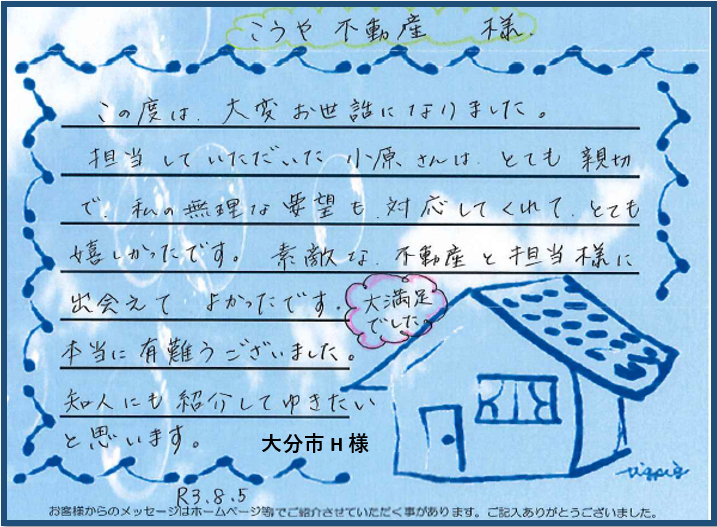 こうや不動産 様
この度は、大変お世話になりました。
担当していただいた小原さんは、とても親切
で、私の無理な要望も、対応してくれて、とても
嬉しかったです。素敵な、不動産と担当様に
出会えて よかったです。
大満足
でした。
本当に有難うございました。
知人にも紹介してゆきたい
と思います。
大分市 H 様
R3.8.5
お客様からのメッセージはホームページ等でご紹介させていただく事があります。ご記入ありがとうございました。